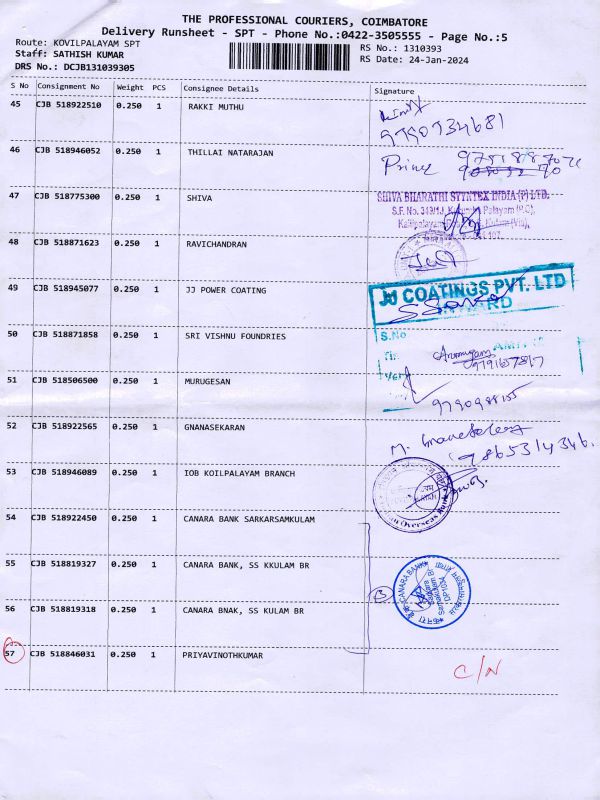 THE PROFESSIONAL COURIERS, COIMBATORE
Delivery Runsheet - SPT - Phone No.:0422-3505555 - Page No.:5
Route: KOVILPALAYAM SPT
RS No.: 1310393
Staff: SATHISH KUMAR
RS Date: 24-Jan-2024
DRS No.: DCJB131039305
S No Consignment No Weight PCS Consignee Details Signature
45 CJB 518922510 0.250 1 RAKKI MUTHU
9790734681
46 CJB 518946052 0.250 1 THILLAI NATARAJAN
Prince
47 CJB 518775300 0.250 1 SHIVA
SHIVA BHARATHI SYNTEX INDIA (P) LTD.
S.F. No. 349/1J, Palayam (P.O),
48 CJB 518871623 0.250 1 RAVICHANDRAN
49 CJB 518945077 0.250 1 JJ POWER COATING
JJ COATINGS PVT. LTD
S.No
50 CJB 518871858 0.250 1 SRI VISHNU FOUNDRIES
Arumugam
51 CJB 518506500 0.250 1 MURUGESAN
9790988155
52 CJB 518922565 0.250 1 GNANASEKARAN
M. Gnanasekaran
9865314346.
53 CJB 518946089 0.250 1 IOB KOILPALAYAM BRANCH
Overseas Bank
54 CJB 518922450 0.250 1 CANARA BANK SARKARSAMKULAM
55 CJB 518819327 0.250 1 CANARA BANK, SS KKULAM BR
CANARA BANK
56 CJB 518819318 0.250 1 CANARA BNAK, SS KULAM BR
57 CJB 518846031 0.250 1 PRIYAVINOTHKUMAR
C/N